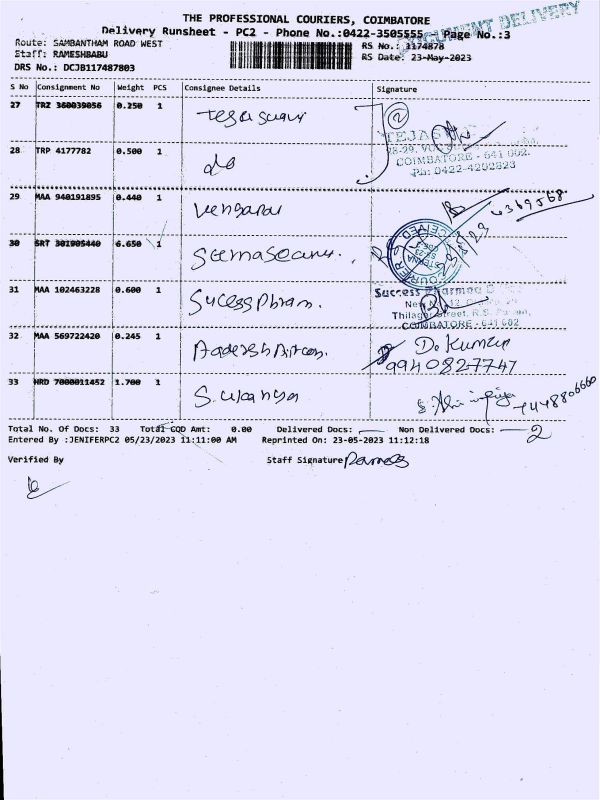 THE PROFESSIONAL COURIERS, COIMBATORE
DOCUMENT DELIVERY
Delivery Runsheet - PC2 - Phone No.:0422-3505555 - Page No.:3
Route: SAMBANTHAM ROAD WEST
RS No.: 1174878
Staff: RAMESHBABU
RS Date: 23-May-2023
DRS No.: DCJB117487803
S No Consignment No Weight PCS Consignee Details Signature
27 TRZ 360039056 0.250 1
2
TEJAS
COIMBATORE - 641 002.
Ph: 0422-4202823
28 TRP 4177782 0.500 1 do
29 MAA 940191895 0.440 1
30 SRT 301905440 6.650 1
COURIER RECEIVED
31 MAA 102463228 0.600 1 Sucess Phram.
Success Pharma
Street, R.S. Puram,
COIMBATORE - 641 002
32 MAA 569722420 0.245 1 Aadersh Aircon. D. Kumar
9940827747
33 HRD 7000011452 1.700 1
Total No. Of Docs: 33 Total COD Amt: 0.00 Delivered Docs: — Non Delivered Docs: — 2
Entered By :JENIFERPC2 05/23/2023 11:11:00 AM Reprinted On: 23-05-2023 11:12:18
Verified By Staff Signature